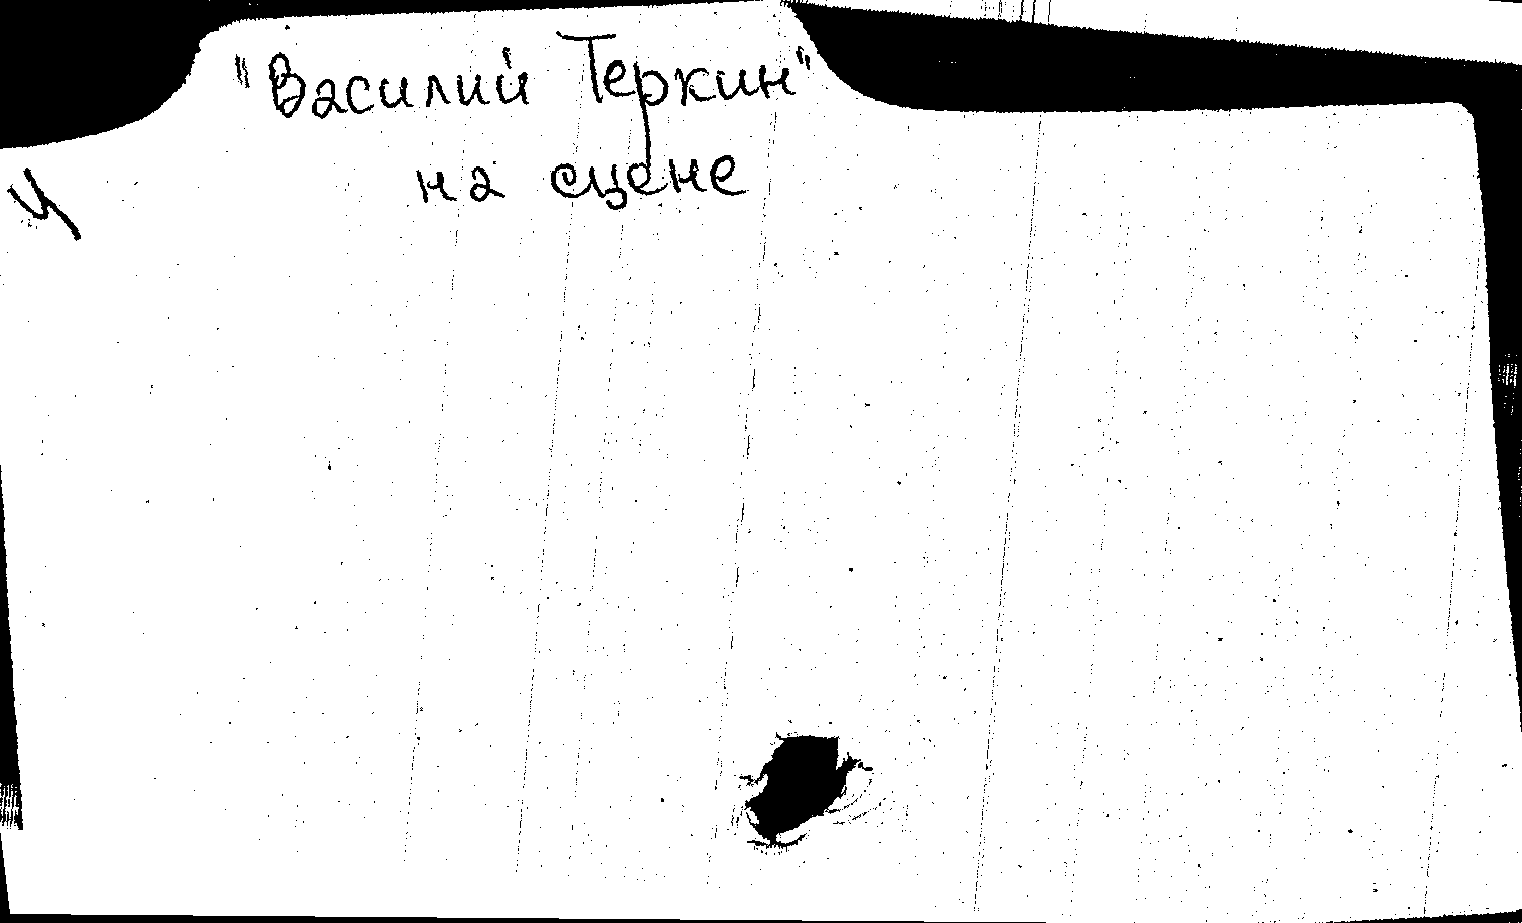 "Василий Теркин"
на сцене